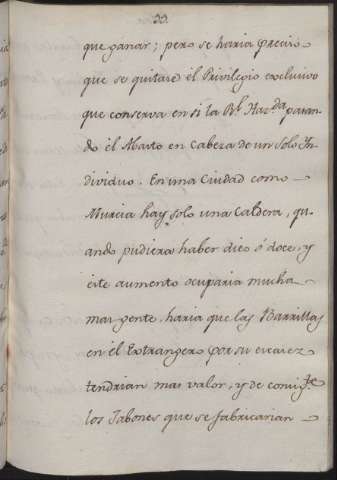 55.
que ganar; pero se haria preciso
que se quitare el Privilegio exclusivo
que conserva en si la Rl. Haz.da paran
do el Marto en Cabeza de un solo In
dividuo. En una Ciudad como
Murcia hay solo una Caldera, qu
ando pudiera haber diez ó doce, y
este aumento ocuparia mucha
mas gente, haria que las Barrillas
en el Extrangero por su escasez
tendrian mas valor, y de consig.te
los Jabones que se fabricarian